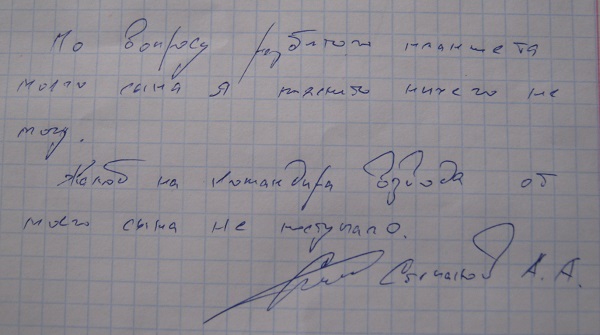 По вопросу разбитого планшета
моего сына я пояснить ничего не
могу.
Жалоб на командира взвода от
моего сына не поступало.
Степанов А. А.